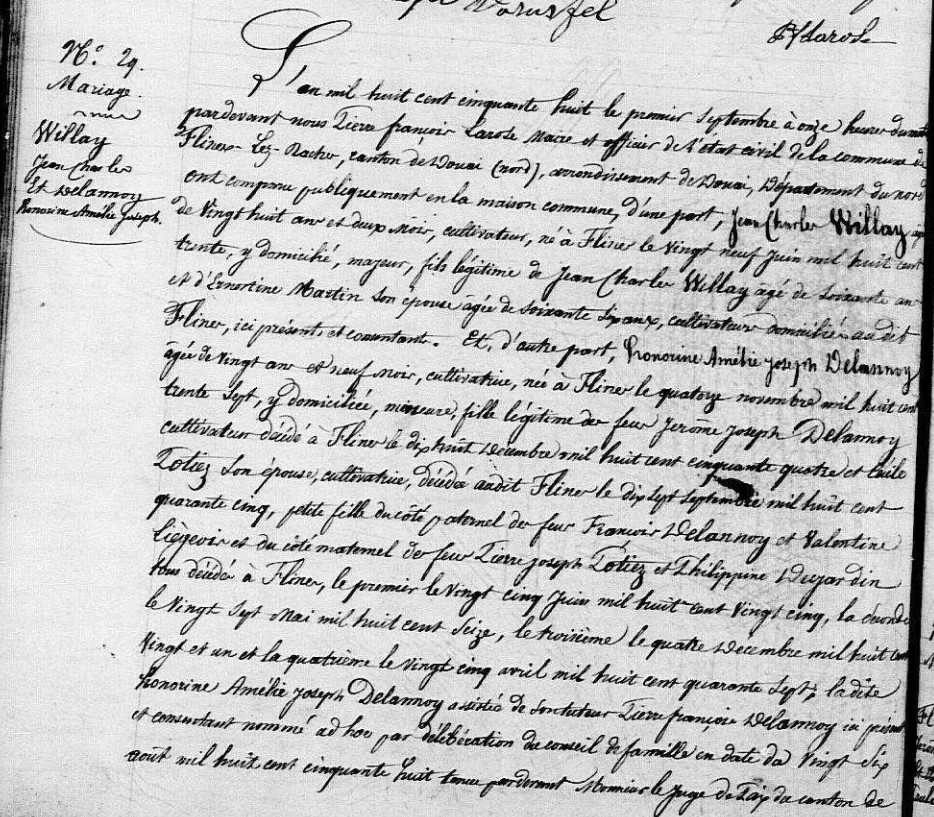 PF Larose
N.° 29.
Mariage
Willay
Jean Charles
Et Delannoy
honorine Amélie Joseph.
L'an mil huit cent cinquante huit le premier septembre à onze heures du matin
pardevant nous Pierre françois Larose Maire et officier de l'état civil de la commune de
Flines-Lez-Raches, canton de Douai (nord), arrondissement de Douai, Département du nord
ont comparu publiquement en la maison commune, d'une part, Jean Charles Willay, agé
de Vingt huit ans et deux mois, cultivateur, né à Flines le Vingt neuf Juin mil huit cent
trente, y domicilié, majeur, fils légitime de Jean Charles Willay âgé de soixante ans
et d'Ernestine Martin son épouse âgée de soixante deux, cultivateurs domiciliés audit
Flines, ici présents et consentants. Et, d'autre part, honorine Amélie Joseph Delannoy
âgée de vingt ans et neuf mois, cultivatrice, née à Flines le quatorze novembre mil huit cent
trente sept, y domiciliée, mineure, fille légitime de feu Jerome Joseph Delannoy
cultivateur décédé à Flines le dix huit Decembre mil huit cent cinquante quatre et
Totiez son épouse, cultivatrice, décédée audit Flines le dix sept septembre mil huit cent
quarante cinq, petite fille du côté paternel de feu François Delannoy et Valentine
Liégeois et du côté maternel de feu Pierre Joseph Totiez et Philippine Dujardin
tous décédés à Flines, le premier le vingt cinq Juin mil huit cent vingt cinq, la seconde
le Vingt sept Mai mil huit cent seize, le troisième le quatre Decembre mil huit cent
Vingt et un et la quatrième le vingt cinq avril mil huit cent quarante sept, ladite
honorine Amélie Joseph Delannoy assistée de son tuteur Pierre françois Delannoy ici présent
et consentant nommé ad hoc par délibération du conseil de famille en date du Vingt six
août mil huit cent cinquante huit tenue pardevant Monsieur le Juge de Paix du canton de